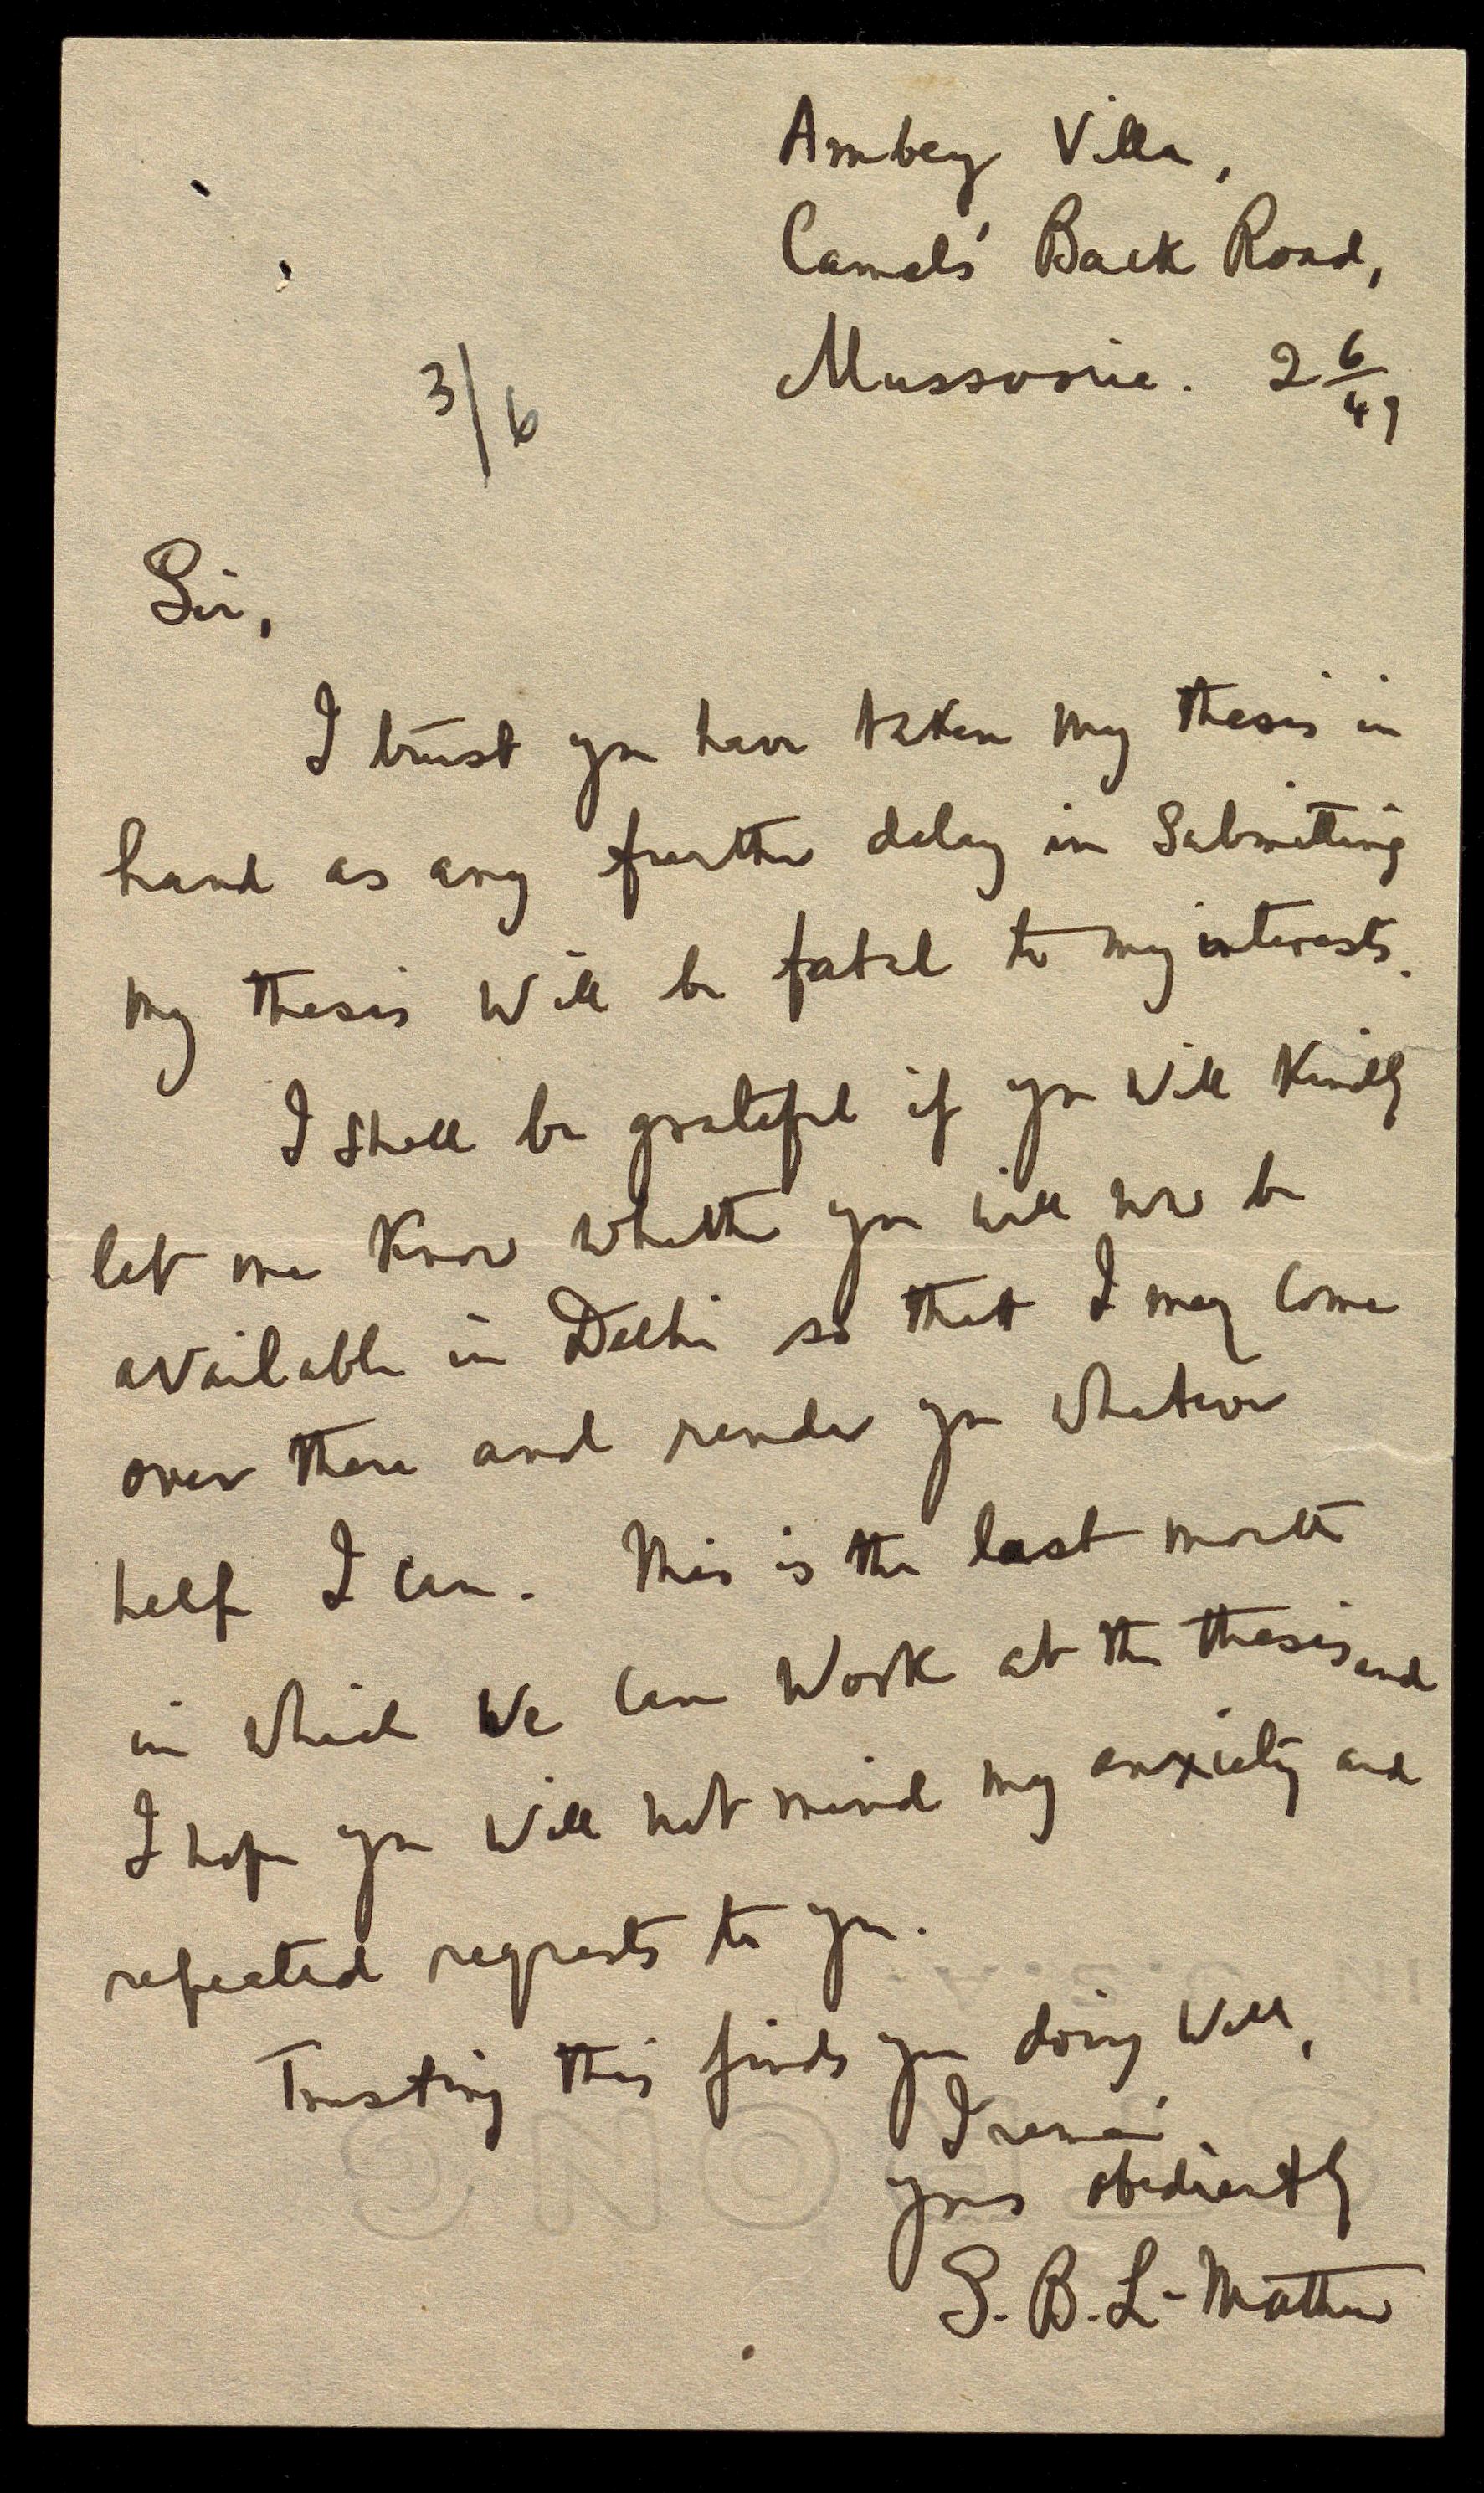 Ambey Villa,
Camels' Back Road,
Mussoorie. 2 6/49
3/6
Sir,
I trust you have taken my thesis in
hand as any further delay in submitting
my thesis will be fatal to my interests.
I shall be grateful if you will kindly
let me know whether you will now be
available in Delhi so that I may come
over there and render you whatever
help I can. This is the last month
in which we can work at the thesis and
I hope you will not mind my anxiety and
repeated requests to you.
Trusting this finds you doing well,
I remain
yours obediently
S. B. L. Mathur